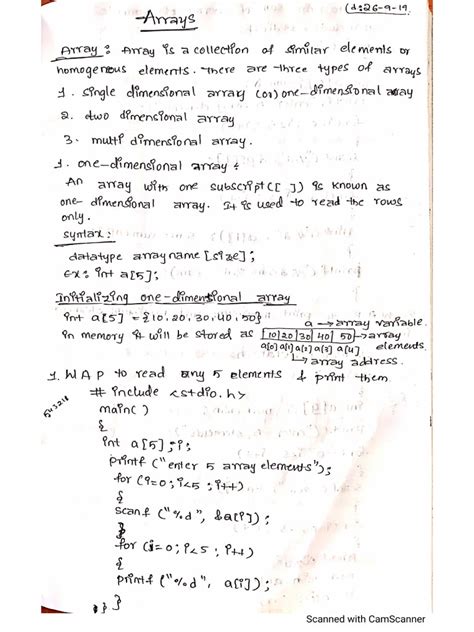 (d:26-9-19
Arrays
Array : Array is a collection of similar elements or
homogenous elements. There are three types of arrays
1. single dimensional array (or) one-dimensional array
2. two dimensional array
3. multi dimensional array.
1. one-dimensional array :
An array with one subscript ([ ]) is known as
one-dimensional array. It is used to read the rows
only.
syntax:
datatype arrayname [size];
Ex: int a[5];
Initializing one-dimensional array
int a[5] = {10, 20, 30, 40, 50}
a → array variable
in memory it will be stored as |10|20|30|40|50| → array
a[0] a[1] a[2] a[3] a[4] elements.
→ array address.
1. WAP to read any 5 elements & print them.
# include <stdio.h>
main( )
{
int a[5],i;
printf ("enter 5 array elements");
for (i=0; i<5 ; i++)
{
scanf ("%d", &a[i]);
}
for (i=0; i<5 ; i++)
{
printf ("%d", a[i]);
} }
Scanned with CamScanner